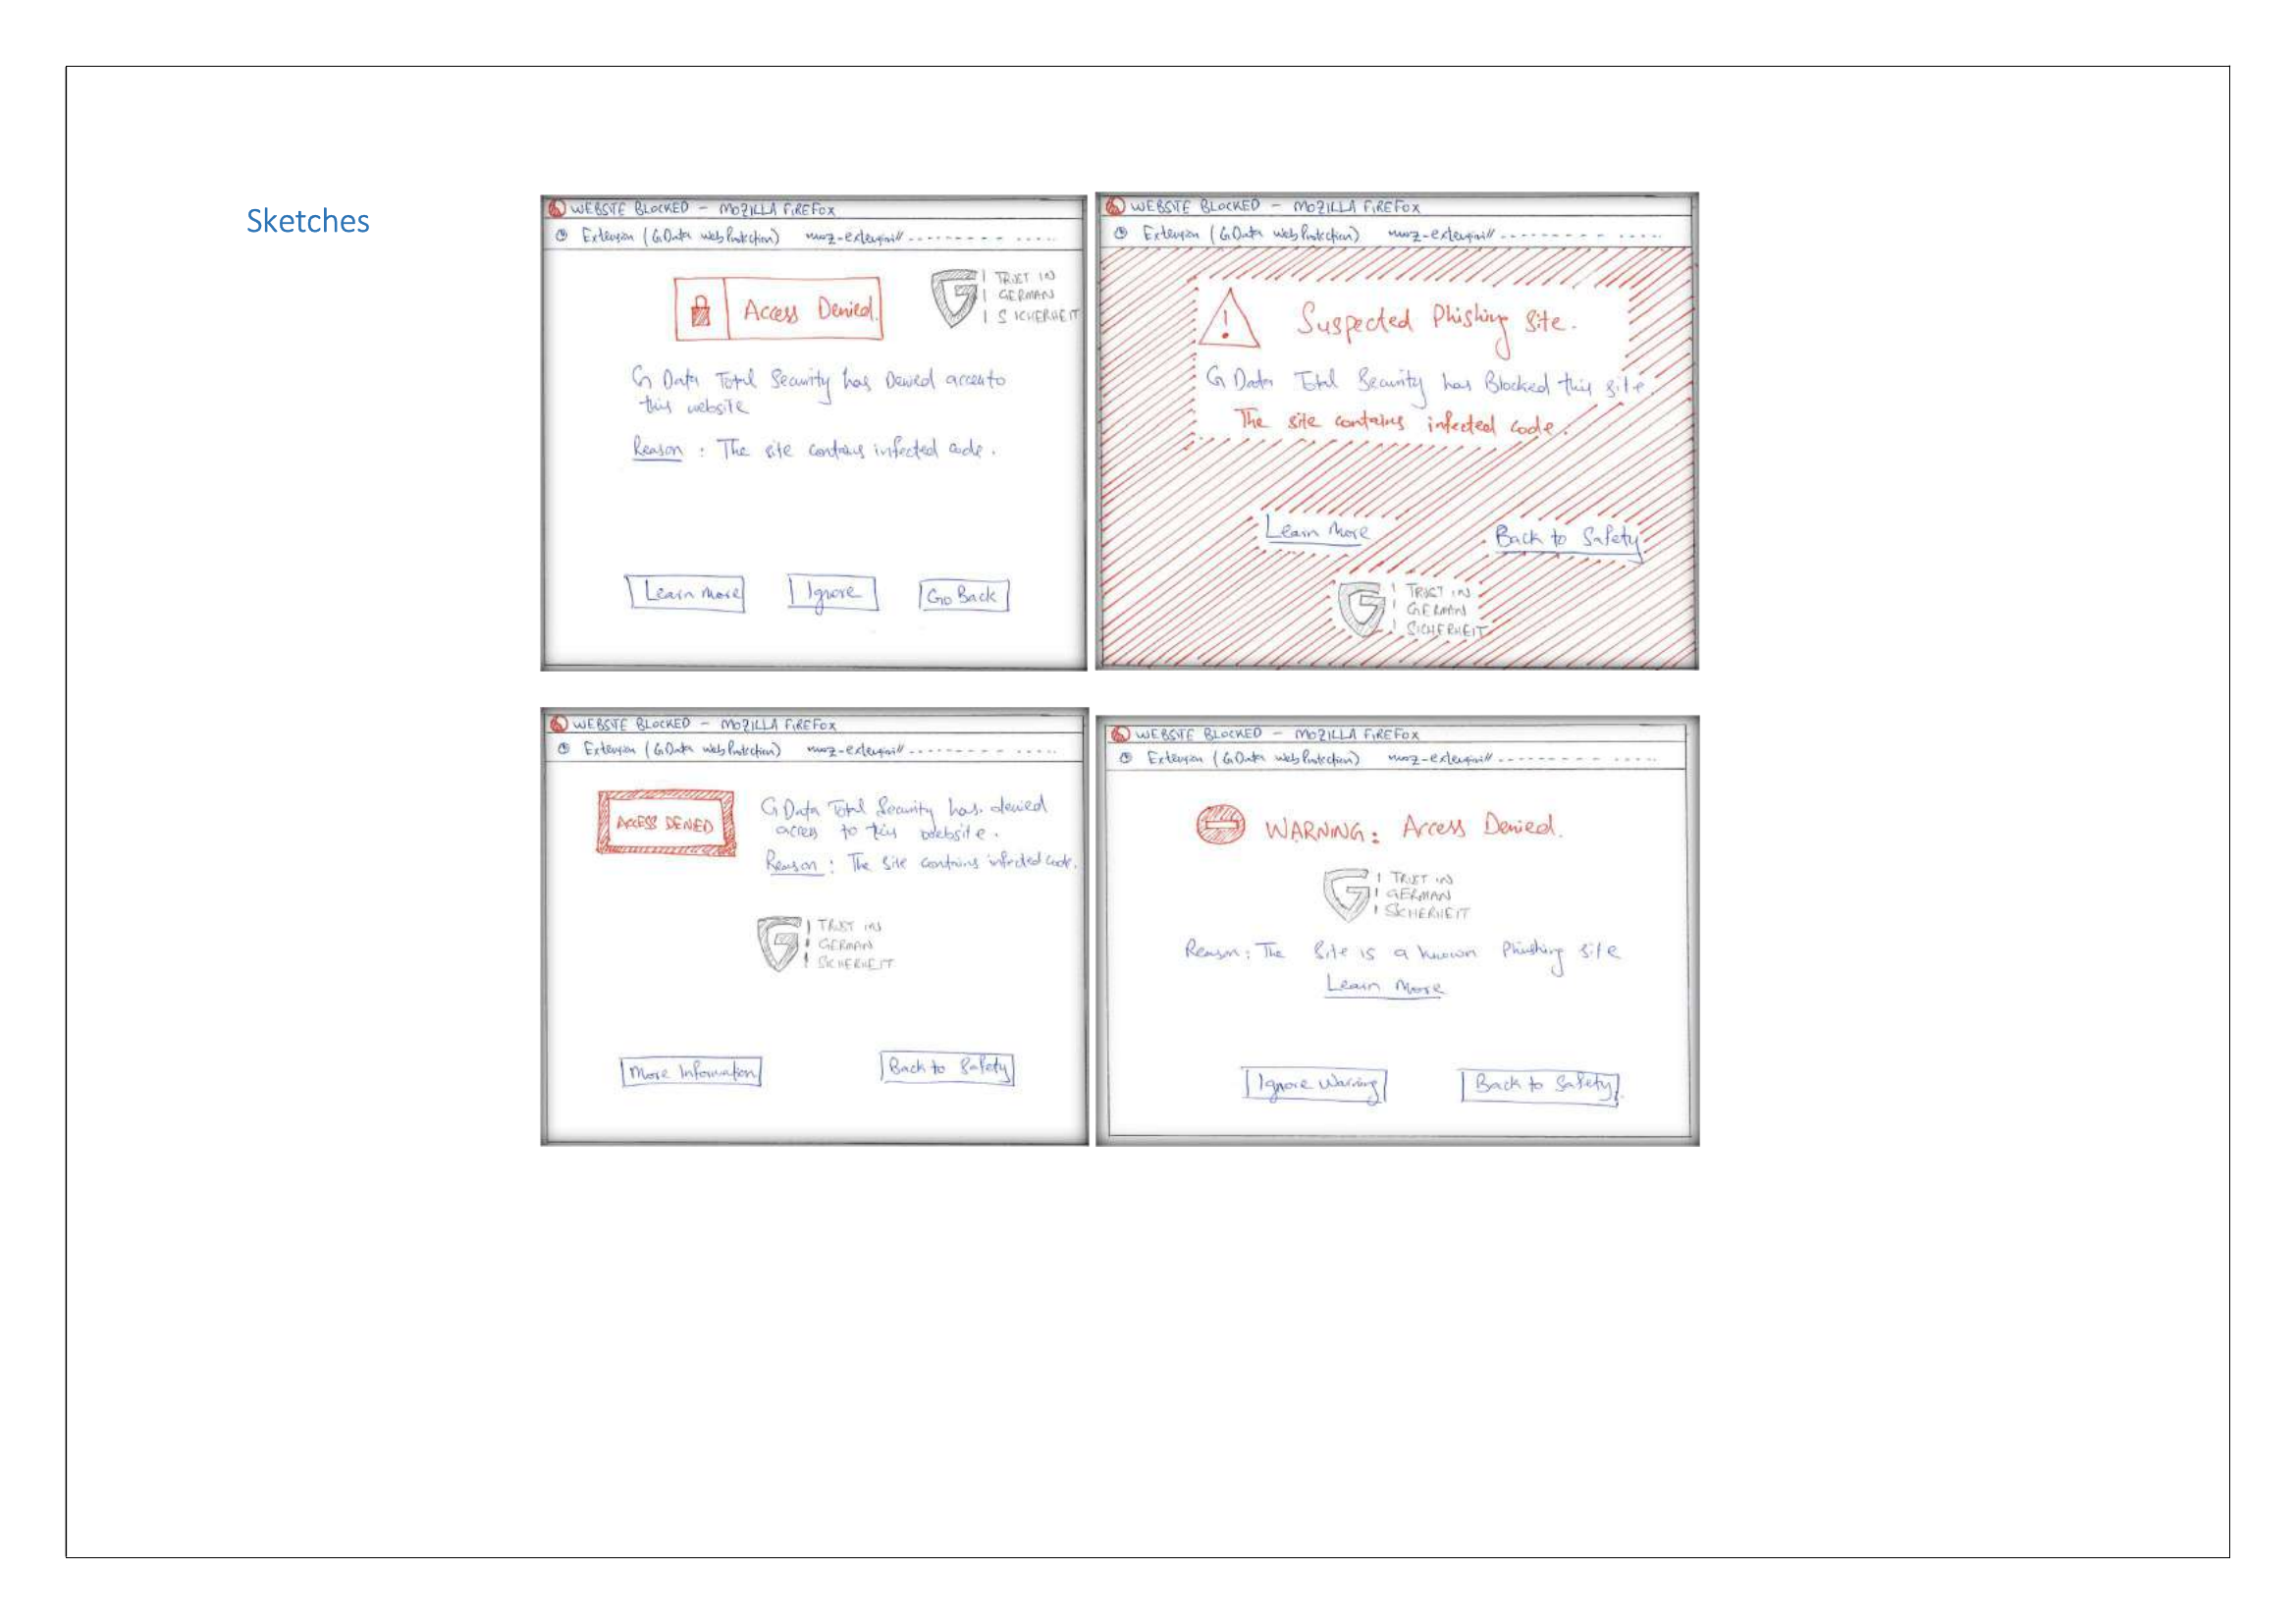 Sketches
WEBSITE BLOCKED - MOZILLA FIREFOX
Extension (G Data Web Protection) moz-extension//
Access Denied.
TRUST IN
GERMAN
SICHERHEIT
G Data Total Security has Denied access to
this website
Reason : The site contains infected code.
Learn More
Ignore
Go Back
WEBSITE BLOCKED - MOZILLA FIREFOX
Extension (G Data Web Protection) moz-extension//
Suspected Phishing Site.
G Data Total Security has Blocked this site.
The site contains infected code.
Learn More
Back to Safety
TRUST IN
GERMAN
SICHERHEIT
WEBSITE BLOCKED - MOZILLA FIREFOX
Extension (G Data Web Protection) moz-extension//
ACCESS DENIED
G Data Total Security has denied
access to this website.
Reason : The site contains infected code.
TRUST IN
GERMAN
SICHERHEIT
More Information
Back to Safety
WEBSITE BLOCKED - MOZILLA FIREFOX
Extension (G Data Web Protection) moz-extension//
WARNING: Access Denied.
TRUST IN
GERMAN
SICHERHEIT
Reason: The Site is a known Phishing site
Learn More
Ignore Warning
Back to Safety